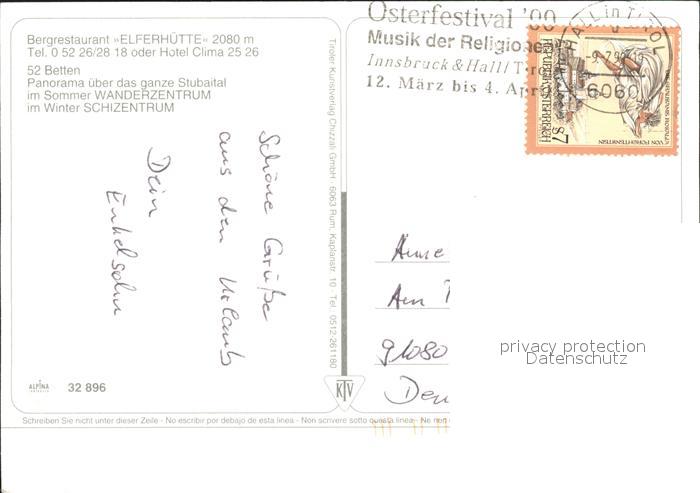 Bergrestaurant »ELFERHÜTTE« 2080 m
Tel. 0 52 26/28 18 oder Hotel Clima 25 26
52 Betten
Panorama über das ganze Stubaital
im Sommer WANDERZENTRUM
im Winter SCHIZENTRUM
Schöne Grüße
aus den Urlaub
Dein
Enkelsohn
ALPINA
32 896
Tiroler Kunstverlag Chizzali GmbH · 6063 Rum, Kaplanstr. 10 - Tel. 0512 261180
KTV
Osterfestival '00
Musik der Religionen
Innsbruck & Hall/Tirol
12. März bis 4. April
HALL in TIROL
6060
REPUBLIK ÖSTERREICH
S7
VON FORCHTENSTEIN
Anne
Am
91080
privacy protection
Datenschutz
Schreiben Sie nicht unter dieser Zeile - No escribir por debajo de esta linea - Non scrivere sotto questa linea - Ne non